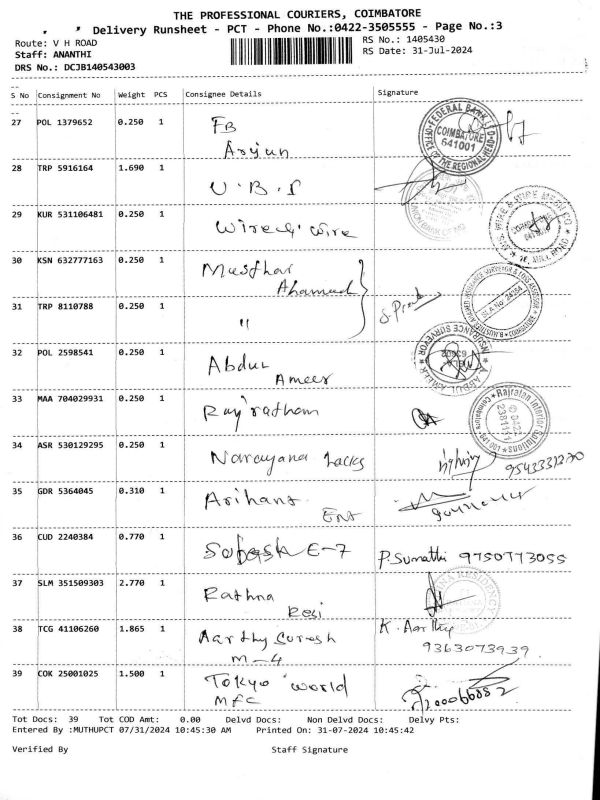 THE PROFESSIONAL COURIERS, COIMBATORE
Delivery Runsheet - PCT - Phone No.:0422-3505555 - Page No.:3
Route: V H ROAD
RS No.: 1405430
Staff: ANANTHI
RS Date: 31-Jul-2024
DRS No.: DCJB140543003
S No Consignment No Weight PCS Consignee Details Signature
27 POL 1379652 0.250 1 FB
Arjun
FEDERAL BANK
COIMBATORE
641001
OFFICE OF THE REGIONAL HEAD
28 TRP 5916164 1.690 1 U.B.I
29 KUR 531106481 0.250 1 Wire & Wire
30 KSN 632777163 0.250 1 Musthak
Ahamed
SLA No
31 TRP 8110788 0.250 1 "
32 POL 2598541 0.250 1 Abdul
Ameer
INSURANCE SURVEYOR
33 MAA 704029931 0.250 1 Raj ratham
Rajratan Interior Solutions
34 ASR 530129295 0.250 1 Narayana Lacks
35 GDR 5364045 0.310 1 Arihant
Ent
36 CUD 2240384 0.770 1 Sobash E-7 P.Sumathi 9750773055
37 SLM 351509303 2.770 1 Rathna
Resi
38 TCG 41106260 1.865 1 Aarthy Suresh K. Aarthy
M-4 9363073939
39 COK 25001025 1.500 1 Tokyo World
MFC
Tot Docs: 39 Tot COD Amt: 0.00 Delvd Docs: Non Delvd Docs: Delvy Pts:
Entered By :MUTHUPCT 07/31/2024 10:45:30 AM Printed On: 31-07-2024 10:45:42
Verified By Staff Signature